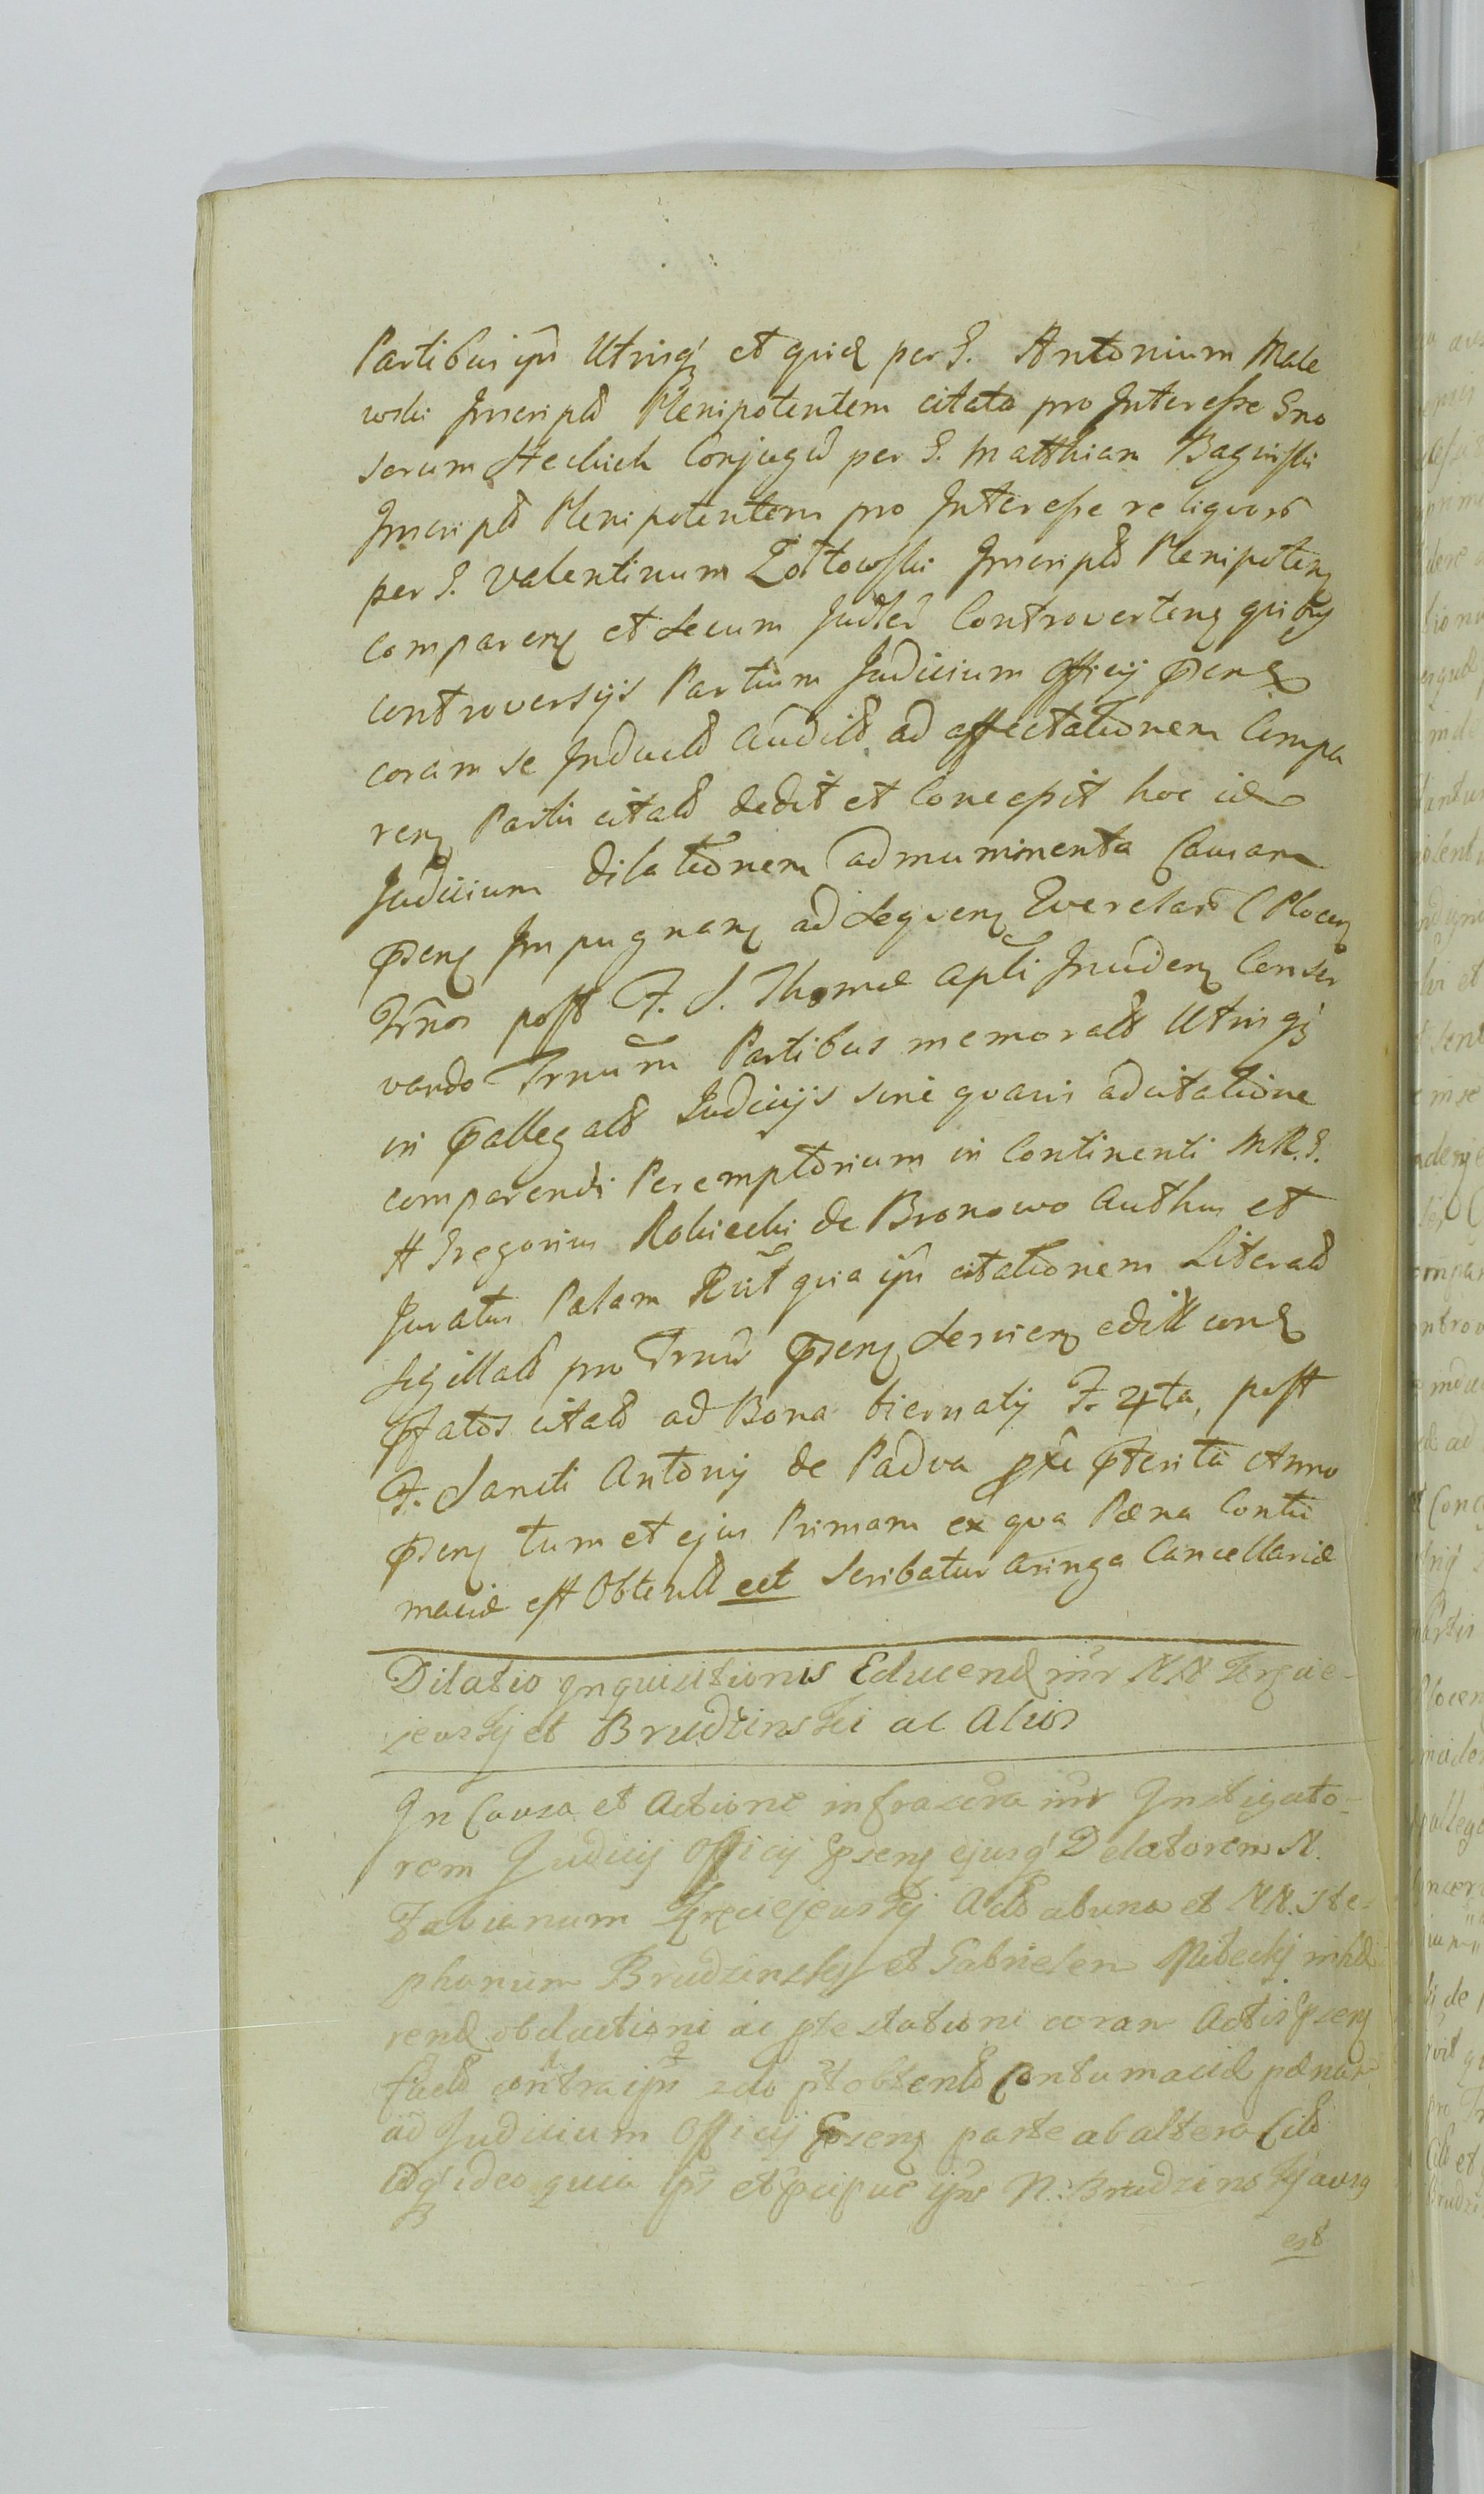 Partibus ipis Utrisq et quid per G. Antonium Male
wski Inscriptū Plenipotentem citato pro Interesse Gno
sorum Heckich Conjugū per G. Matthiam Baginski
Inscriptū Plenipotentem pro Interesse reliquorū
per G. Valentinum Zołtowski Inscriptū Plenipoten
comparen et secum Judler Controverten quibus
controversijs Partium Judicium Officij pñs
coram se Inductū auditū ad affectationem Compa
ren Partis citatū dedit et Concessit hoc id
Judicium dilationem ad munimenta Causam
psen Impugnan ad sequen Querelarū Plocen
Trnos post F. S. Thomæ apli Inciden Conser
vando Trnum Partibus memoratū Utrisq
in pallegatū Judicijs sine quavis adcitatione
comparendi Peremptorium in Continenti MR. G.
H Gregorius Rokicki de Bronowo Authus et
Juratus Palam Rūt quia ipi citationem Literatū
Sigillatū pro Trnū psen servien edit
pfatos citatū ad Bona biernaty F. 4ta, post
F. Sancti Antonij de Padua pxi pterita Anno
psen tum et ejus Primam ex qua Pæna Contu
maciæ est Obtentū ect Scribatur Aringa Cancellariæ
Dilatio Inquisitionis Educend intr NN
et Brudzinski ac Alios
In Causa et Actione infrascra intr Instigato-
rem Judicij Officij psen ejusq Delatorem N.
Fabianum Actū ab una et NN. Ste-
phanum Brudzinsky et Gabrielem inhæ
rend obductioni ac ptestationi coram Actis psen
factū contra ipi pt obtentū Contumaciæ pænar
ad Judicium Officij psen parte ab altera Citū
idq ideo quia ipi et pcipue ipse N. Brudzinsky ausg
est